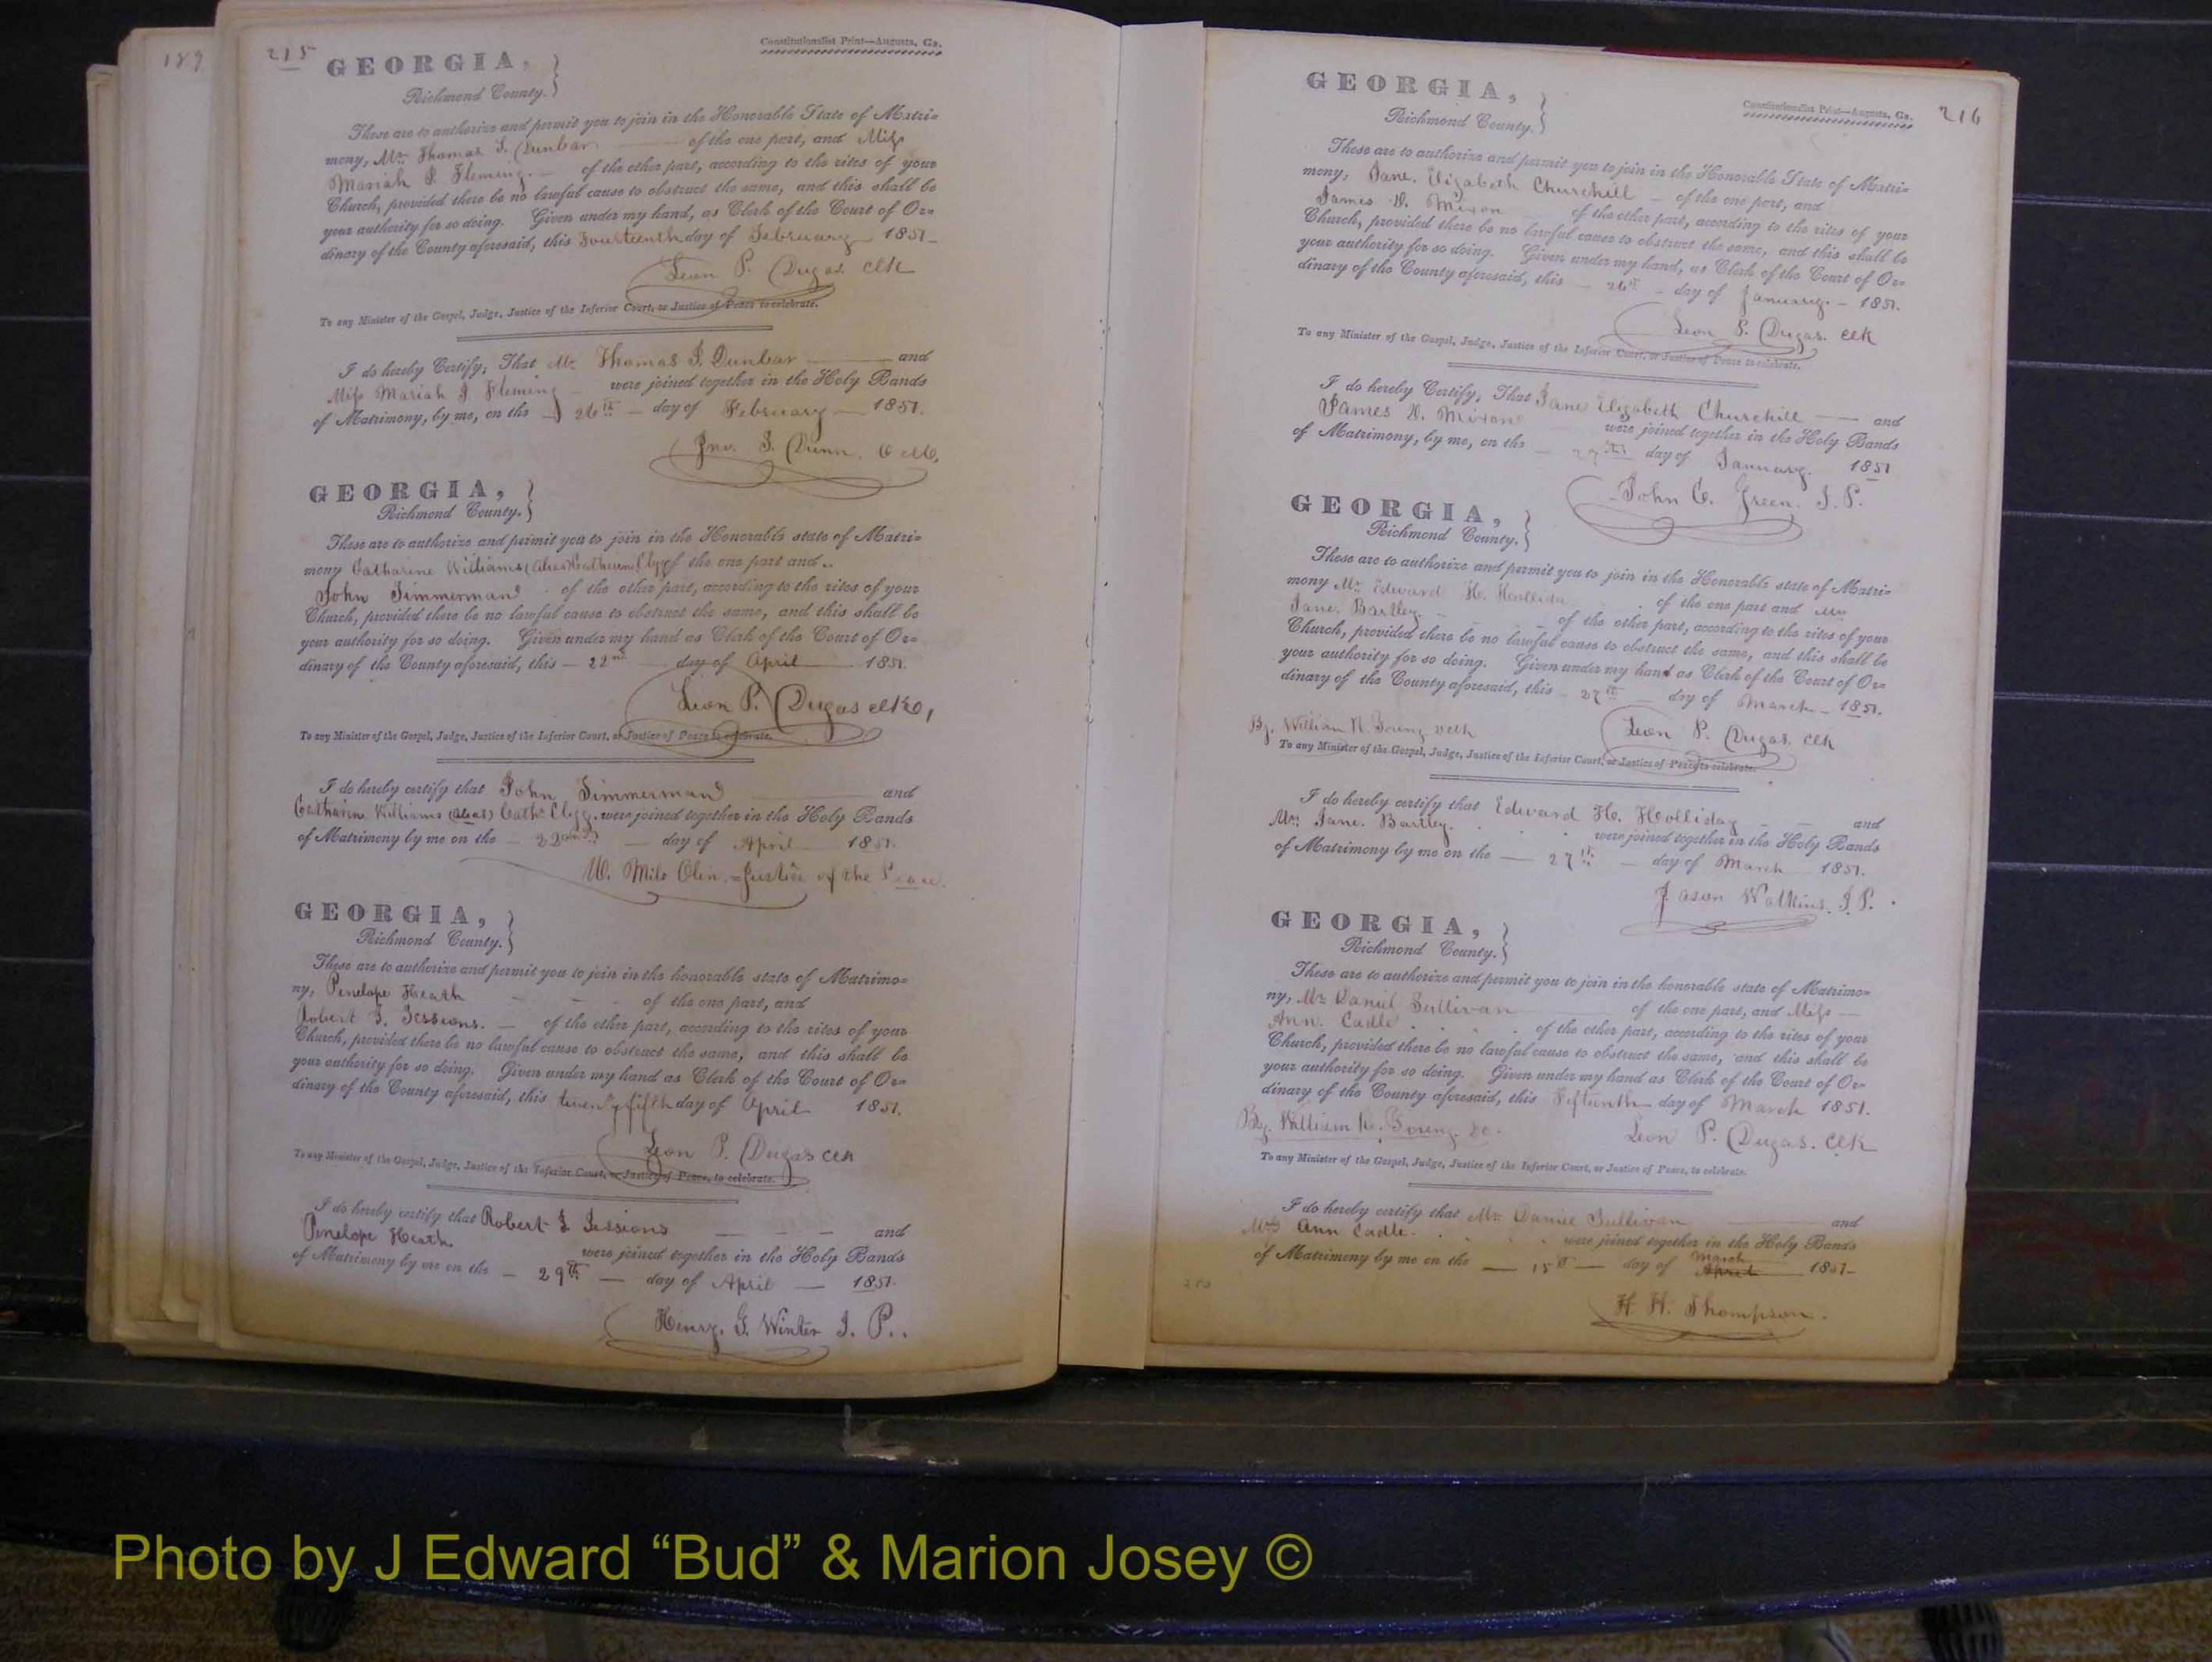 189
215
Constitutionalist Print—Augusta, Ga.
GEORGIA,
Richmond County.
These are to authorize and permit you to join in the Honorable State of Matri=
mony, Mr. Thomas S. Dunbar of the one part, and Miss
Mariah S. Fleming. of the other part, according to the rites of your
Church, provided there be no lawful cause to obstruct the same, and this shall be
your authority for so doing. Given under my hand, as Clerk of the Court of Or=
dinary of the County aforesaid, this Fourteenth day of February 1851
Leon P. Dugas. Clk
To any Minister of the Gospel, Judge, Justice of the Inferior Court, or Justice of Peace to celebrate.
I do hereby Certify, That Mr. Thomas S. Dunbar and
Miss Mariah S. Fleming were joined together in the Holy Bands
of Matrimony, by me, on the 26th day of February 1851.
Jno. S. Dunn.
GEORGIA,
Richmond County.
These are to authorize and permit you to join in the Honorable state of Matri=
mony Catharine Williams (alias) Catharine Clegg of the one part and
John Timmerman of the other part, according to the rites of your
Church, provided there be no lawful cause to obstruct the same, and this shall be
your authority for so doing. Given under my hand as Clerk of the Court of Or=
dinary of the County aforesaid, this 22nd day of April 1851.
Leon P. Dugas
To any Minister of the Gospel, Judge, Justice of the Inferior Court, or Justice of Peace to celebrate.
I do hereby certify that John Timmerman and
Catharine Williams (alias) Cath. Clegg. were joined together in the Holy Bands
of Matrimony by me on the 22nd day of April 1851.
W. Milo Olin. = Justice of the Peace.
GEORGIA,
Richmond County.
These are to authorize and permit you to join in the honorable state of Matrimo=
ny, Penelope Heath of the one part, and
Robert S. Sessions. of the other part, according to the rites of your
Church, provided there be no lawful cause to obstruct the same, and this shall be
your authority for so doing. Given under my hand as Clerk of the Court of Or=
dinary of the County aforesaid, this twenty fifth day of April 1851.
Leon P. Dugas Clk
To any Minister of the Gospel, Judge, Justice of the Inferior Court, or Justice of Peace, to celebrate.
I do hereby certify that Robert S Sessions and
Penelope Heath were joined together in the Holy Bands
of Matrimony by me on the 29th day of April 1851.
Henry. G. Winter J. P.
216
Constitutionalist Print—Augusta, Ga.
GEORGIA,
Richmond County.
These are to authorize and permit you to join in the Honorable State of Matri=
mony, Jane. Elizabeth Churchill of the one part, and
James D. Mixon of the other part, according to the rites of your
Church, provided there be no lawful cause to obstruct the same, and this shall be
your authority for so doing. Given under my hand, as Clerk of the Court of Or=
dinary of the County aforesaid, this 26th day of January. 1851.
Leon P. Dugas. Clk
To any Minister of the Gospel, Judge, Justice of the Inferior Court, or Justice of Peace to celebrate.
I do hereby Certify, That Jane Elizabeth Churchill and
James D. Mixon were joined together in the Holy Bands
of Matrimony, by me, on the 27th day of January. 1851
John C. Green. J. P.
GEORGIA,
Richmond County.
These are to authorize and permit you to join in the Honorable state of Matri=
mony Mr. Edward H. Holliday of the one part and Mrs
Jane. Bartley of the other part, according to the rites of your
Church, provided there be no lawful cause to obstruct the same, and this shall be
your authority for so doing. Given under my hand as Clerk of the Court of Or=
dinary of the County aforesaid, this 27th day of March 1851.
By. William N. Young Leon P. Dugas. Clk
To any Minister of the Gospel, Judge, Justice of the Inferior Court, or Justice of Peace to celebrate.
I do hereby certify that Edward H. Holliday and
Mrs Jane. Bartley. were joined together in the Holy Bands
of Matrimony by me on the 27th day of March 1851.
Jason Watkins. J. P.
GEORGIA,
Richmond County.
These are to authorize and permit you to join in the honorable state of Matrimo=
ny, Mr. Daniel Sullivan of the one part, and Miss
Ann. Cadle of the other part, according to the rites of your
Church, provided there be no lawful cause to obstruct the same, and this shall be
your authority for so doing. Given under my hand as Clerk of the Court of Or=
dinary of the County aforesaid, this Fifteenth day of March 1851.
By. William N. Young. Leon P. Dugas. Clk
To any Minister of the Gospel, Judge, Justice of the Inferior Court, or Justice of Peace, to celebrate.
I do hereby certify that Mr. Daniel Sullivan and
Miss Ann Cadle. were joined together in the Holy Bands
of Matrimony by me on the 15th day of March April 1851
H. H. Thompson.
Photo by J Edward “Bud” & Marion Josey ©